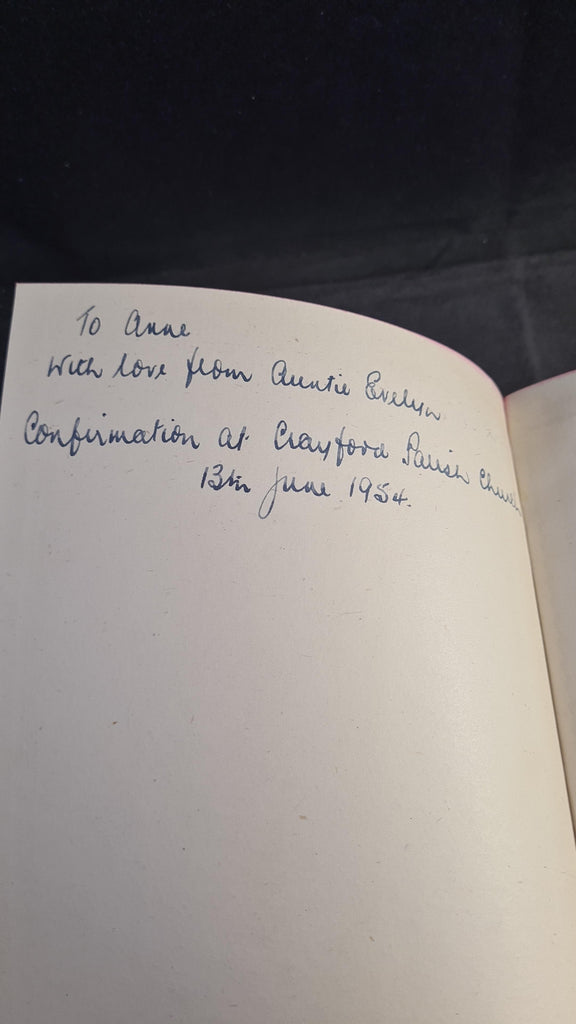 To Anne
With love from Auntie Evelyn
Confirmation at Crayford Parish Church
13th June 1954.